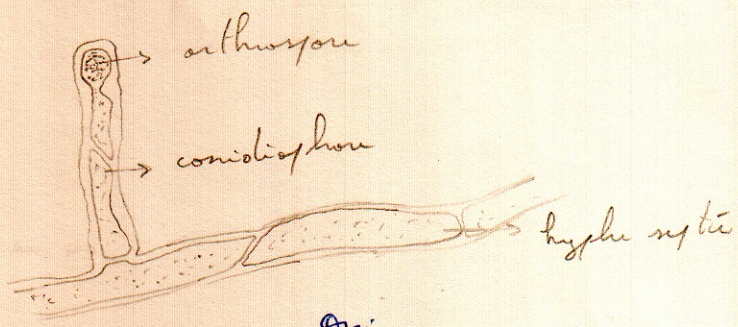 arthrospore
conidiophore
hyphe septé